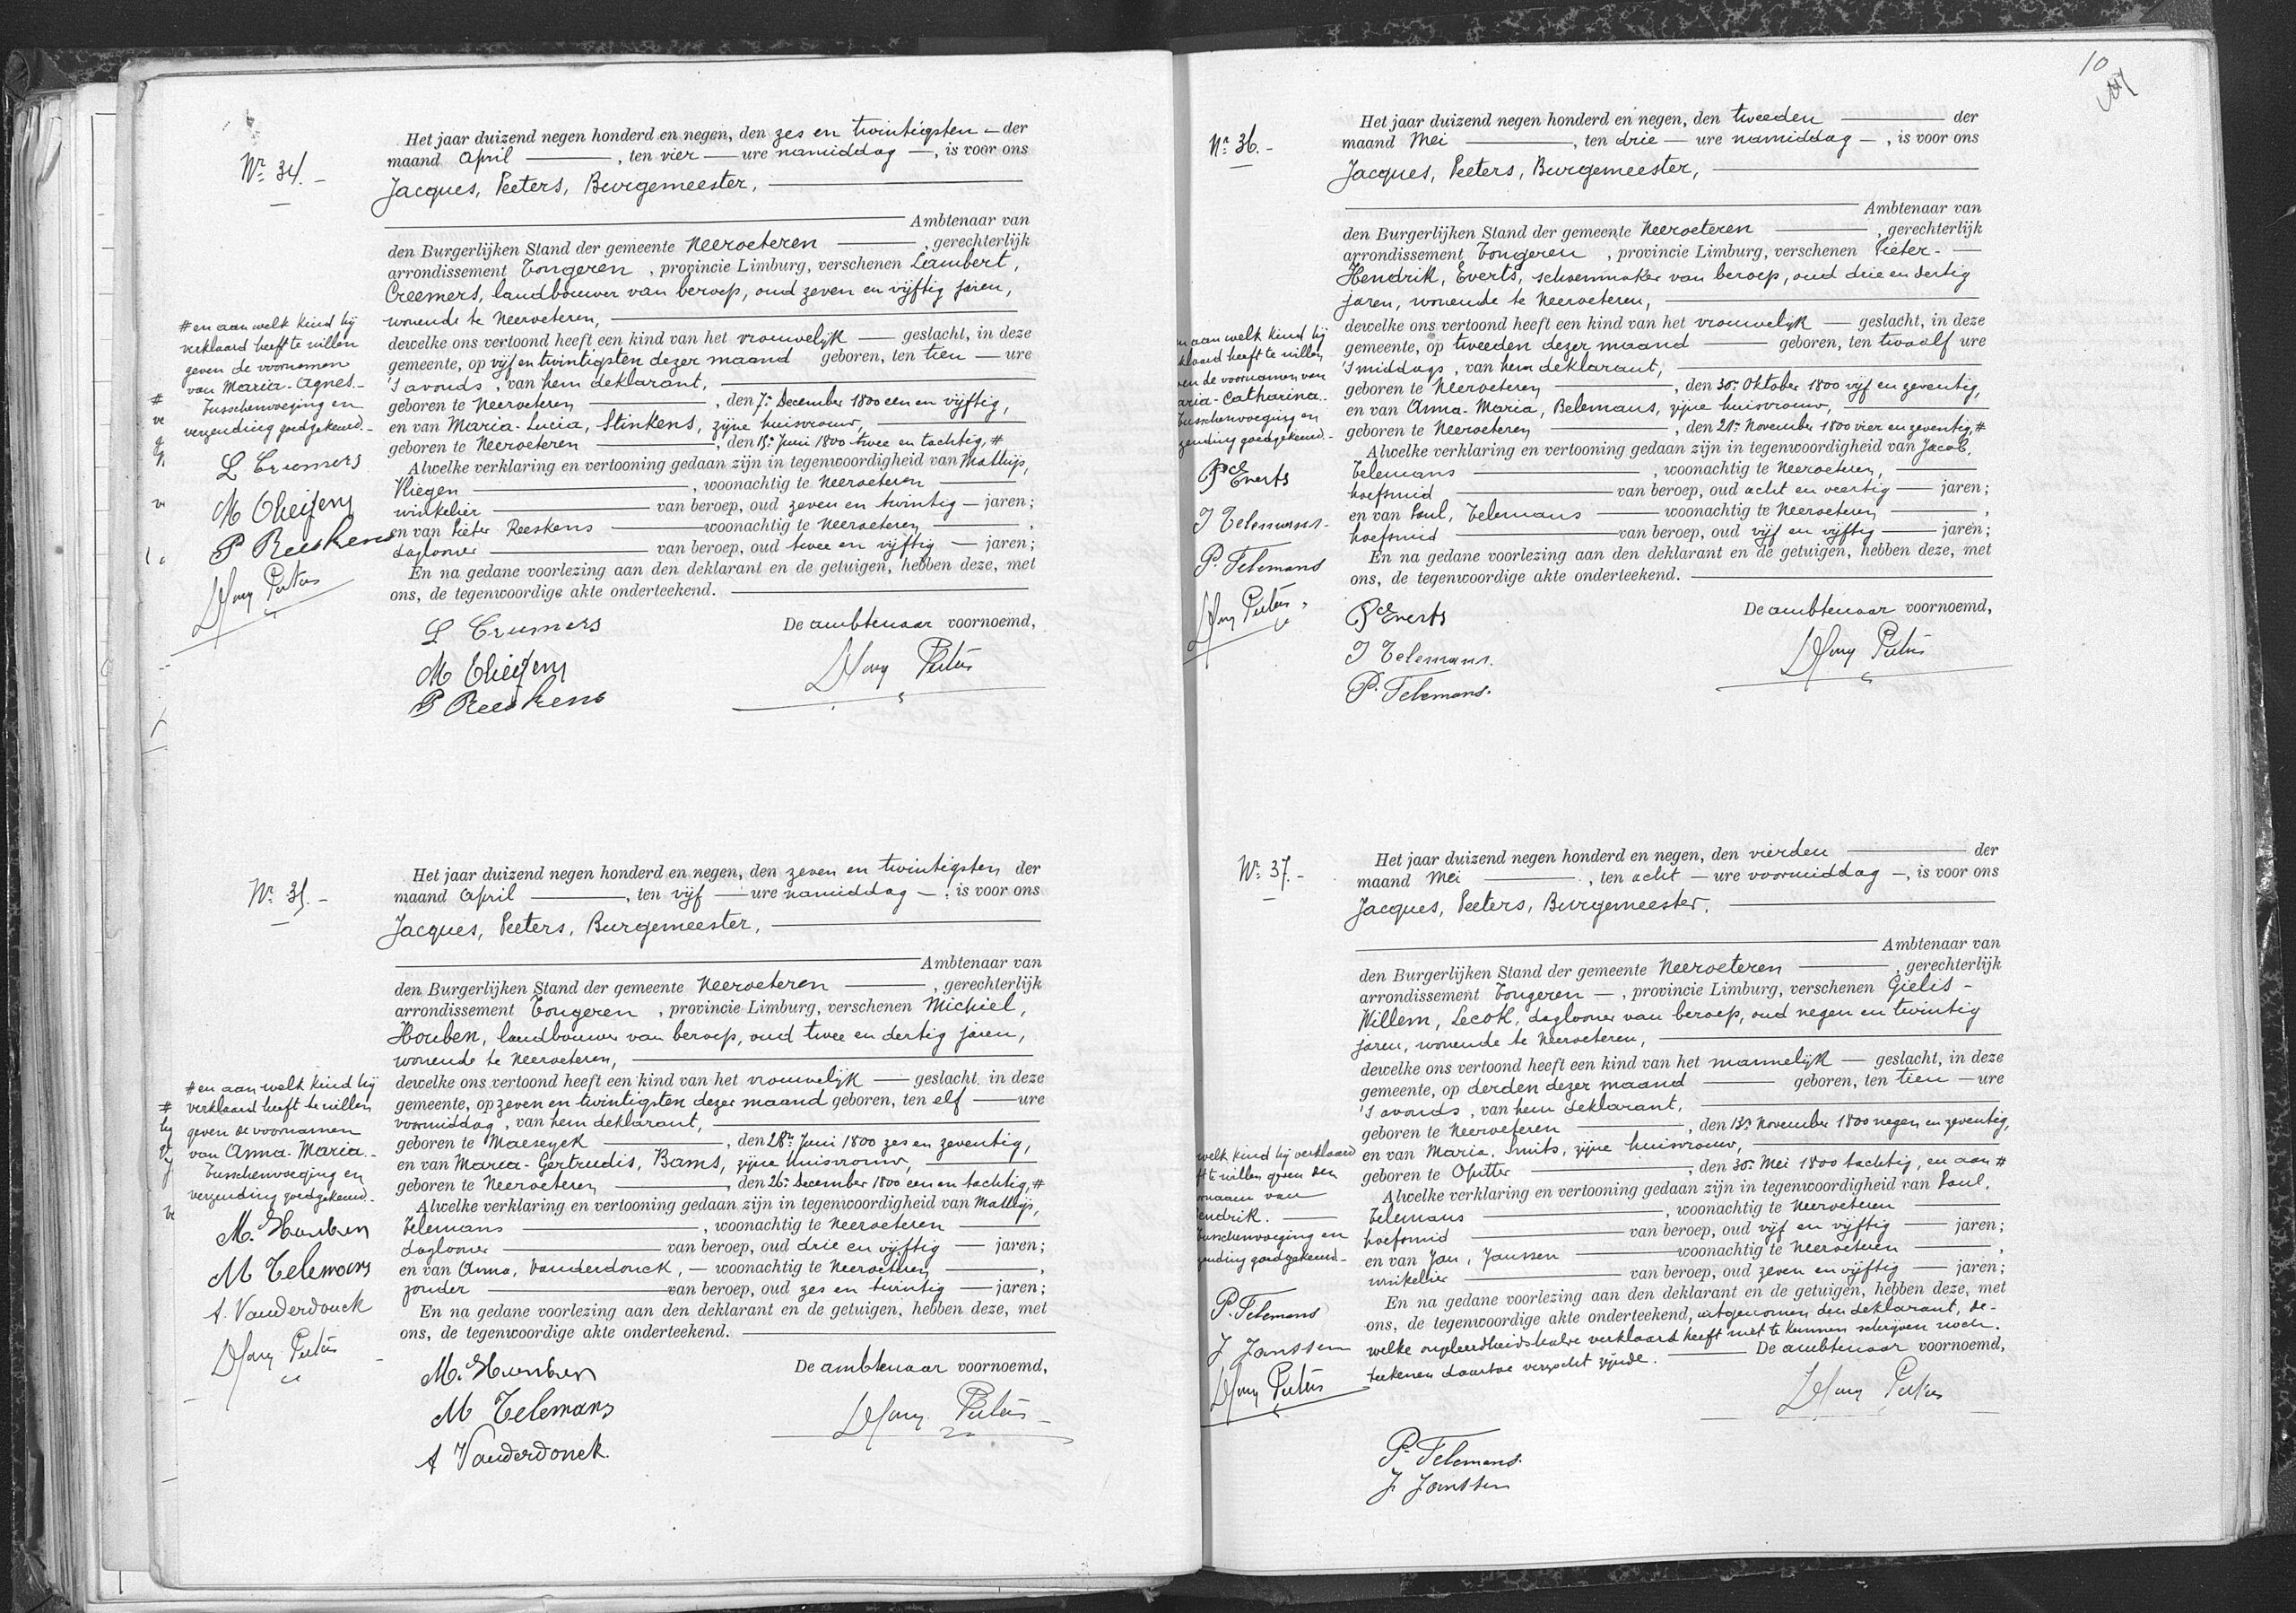 Nr 34. -
Het jaar duizend negen honderd en negen, den zes en twintigsten — der
maand April —, ten vier — ure namiddag —, is voor ons
Jacques, Peeters, Burgemeester, —
Ambtenaar van
den Burgerlijken Stand der gemeente Neeroeteren —, gerechterlijk
arrondissement Tongeren, provincie Limburg, verschenen Lambert,
Creemers, landbouwer van beroep, oud zeven en vijftig jaren,
wonende te Neeroeteren, —
dewelke ons vertoond heeft een kind van het vrouwelijk — geslacht, in deze
gemeente, op vijf en twintigsten dezer maand geboren, ten tien — ure
's avonds, van hem deklarant, —
geboren te Neeroeteren —, den 7n December 1800 een en vijftig,
en van Maria-Lucia, Stinkens, zijne huisvrouw, —
geboren te Neeroeteren —, den 15n Juni 1800 twee en tachtig, #
Alwelke verklaring en vertooning gedaan zijn in tegenwoordigheid van Mathijs,
Vliegen —, woonachtig te Neeroeteren —
winkelier — van beroep, oud zeven en twintig — jaren;
en van Pieter Reeskens — woonachtig te Neeroeteren —,
dagloner — van beroep, oud twee en vijftig — jaren;
En na gedane voorlezing aan den deklarant en de getuigen, hebben deze, met
ons, de tegenwoordige akte onderteekend. —
De ambtenaar voornoemd,
L Creemers
M Vliegen
P Reeskens
# en aan welk kind hij
verklaard heeft te willen
geven de voornamen
van Maria-Agnes. -
Tusschenvoeging en
verzending goedgekeurd. -
L Creemers
M Vliegen
P Reeskens
Nr 35. -
Het jaar duizend negen honderd en negen, den zeven en twintigsten der
maand April —, ten vijf — ure namiddag —, is voor ons
Jacques, Peeters, Burgemeester, —
Ambtenaar van
den Burgerlijken Stand der gemeente Neeroeteren —, gerechterlijk
arrondissement Tongeren, provincie Limburg, verschenen Michiel,
Houben, landbouwer van beroep, oud twee en dertig jaren,
wonende te Neeroeteren, —
dewelke ons vertoond heeft een kind van het vrouwelijk — geslacht, in deze
gemeente, op zeven en twintigsten dezer maand geboren, ten elf — ure
voormiddag, van hem deklarant, —
geboren te Maeseyck —, den 28n Juni 1800 zes en zeventig,
en van Maria-Gertrudis, Bams, zijne huisvrouw, —
geboren te Neeroeteren —, den 26n December 1800 een en tachtig, #
Alwelke verklaring en vertooning gedaan zijn in tegenwoordigheid van Mathijs,
Telemans —, woonachtig te Neeroeteren —
dagloner — van beroep, oud drie en vijftig — jaren;
en van Anna, Vanderdonck, — woonachtig te Neeroeteren —,
zonder — van beroep, oud zes en twintig — jaren;
En na gedane voorlezing aan den deklarant en de getuigen, hebben deze, met
ons, de tegenwoordige akte onderteekend. —
De ambtenaar voornoemd,
M. Houben
M Telemans
A Vanderdonck.
# en aan welk kind hij
verklaard heeft te willen
geven de voornamen
van Anna-Maria. -
Tusschenvoeging en
verzending goedgekeurd. -
M. Houben
M Telemans
A. Vanderdonck
10
Nr 36. -
Het jaar duizend negen honderd en negen, den tweeden — der
maand Mei —, ten drie — ure namiddag —, is voor ons
Jacques, Peeters, Burgemeester, —
Ambtenaar van
den Burgerlijken Stand der gemeente Neeroeteren —, gerechterlijk
arrondissement Tongeren, provincie Limburg, verschenen Pieter-
Hendrik, Everts, schoenmaker van beroep, oud drie en dertig
jaren, wonende te Neeroeteren, —
dewelke ons vertoond heeft een kind van het vrouwelijk — geslacht, in deze
gemeente, op tweeden dezer maand — geboren, ten twaalf ure
's middags, van hem deklarant, —
geboren te Neeroeteren —, den 30n Oktober 1800 vijf en zeventig,
en van Anna-Maria, Belemans, zijne huisvrouw, —
geboren te Neeroeteren —, den 21n November 1800 vier en zeventig, #
Alwelke verklaring en vertooning gedaan zijn in tegenwoordigheid van Jacob,
Telemans —, woonachtig te Neeroeteren, —
hoefsmid — van beroep, oud acht en veertig — jaren;
en van Paul, Telemans — woonachtig te Neeroeteren —,
hoefsmid — van beroep, oud vijf en vijftig — jaren;
En na gedane voorlezing aan den deklarant en de getuigen, hebben deze, met
ons, de tegenwoordige akte onderteekend. —
De ambtenaar voornoemd,
Everts
J Telemans.
P. Telemans.
aan welk kind hij
klaard heeft te willen
de voornamen van
aria-Catharina. -
Tusschenvoeging en
zending goedgekeurd. -
Everts
J Telemans.
P. Telemans
Nr 37. -
Het jaar duizend negen honderd en negen, den vierden — der
maand Mei —, ten acht — ure voormiddag —, is voor ons
Jacques, Peeters, Burgemeester. —
Ambtenaar van
den Burgerlijken Stand der gemeente Neeroeteren —, gerechterlijk
arrondissement Tongeren —, provincie Limburg, verschenen Gielis-
Willem, Lecok, dagloner van beroep, oud negen en twintig
jaren, wonende te Neeroeteren, —
dewelke ons vertoond heeft een kind van het mannelijk — geslacht, in deze
gemeente, op derden dezer maand — geboren, ten tien — ure
's avonds, van hem deklarant, —
geboren te Neeroeteren —, den 13n November 1800 negen en zeventig,
en van Maria, Smits, zijne huisvrouw, —
geboren te Opitter —, den 30n Mei 1800 tachtig, en aan #
Alwelke verklaring en vertooning gedaan zijn in tegenwoordigheid van Paul,
Telemans —, woonachtig te Neeroeteren
hoefsmid — van beroep, oud vijf en vijftig — jaren;
en van Jan, Janssen — woonachtig te Neeroeteren —,
winkelier — van beroep, oud zeven en vijftig — jaren;
En na gedane voorlezing aan den deklarant en de getuigen, hebben deze, met
ons, de tegenwoordige akte onderteekend, uitgenomen den deklarant, de-
welke ongeleerdheidshalve verklaard heeft niet te kunnen schrijven noch
teekenen daartoe verzocht zijnde. —
De ambtenaar voornoemd,
P. Telemans.
J. Janssen
welk kind hij verklaard
te willen geven den
naam van
endrik. —
Tusschenvoeging en
zending goedgekeurd -
P. Telemans
J Janssen